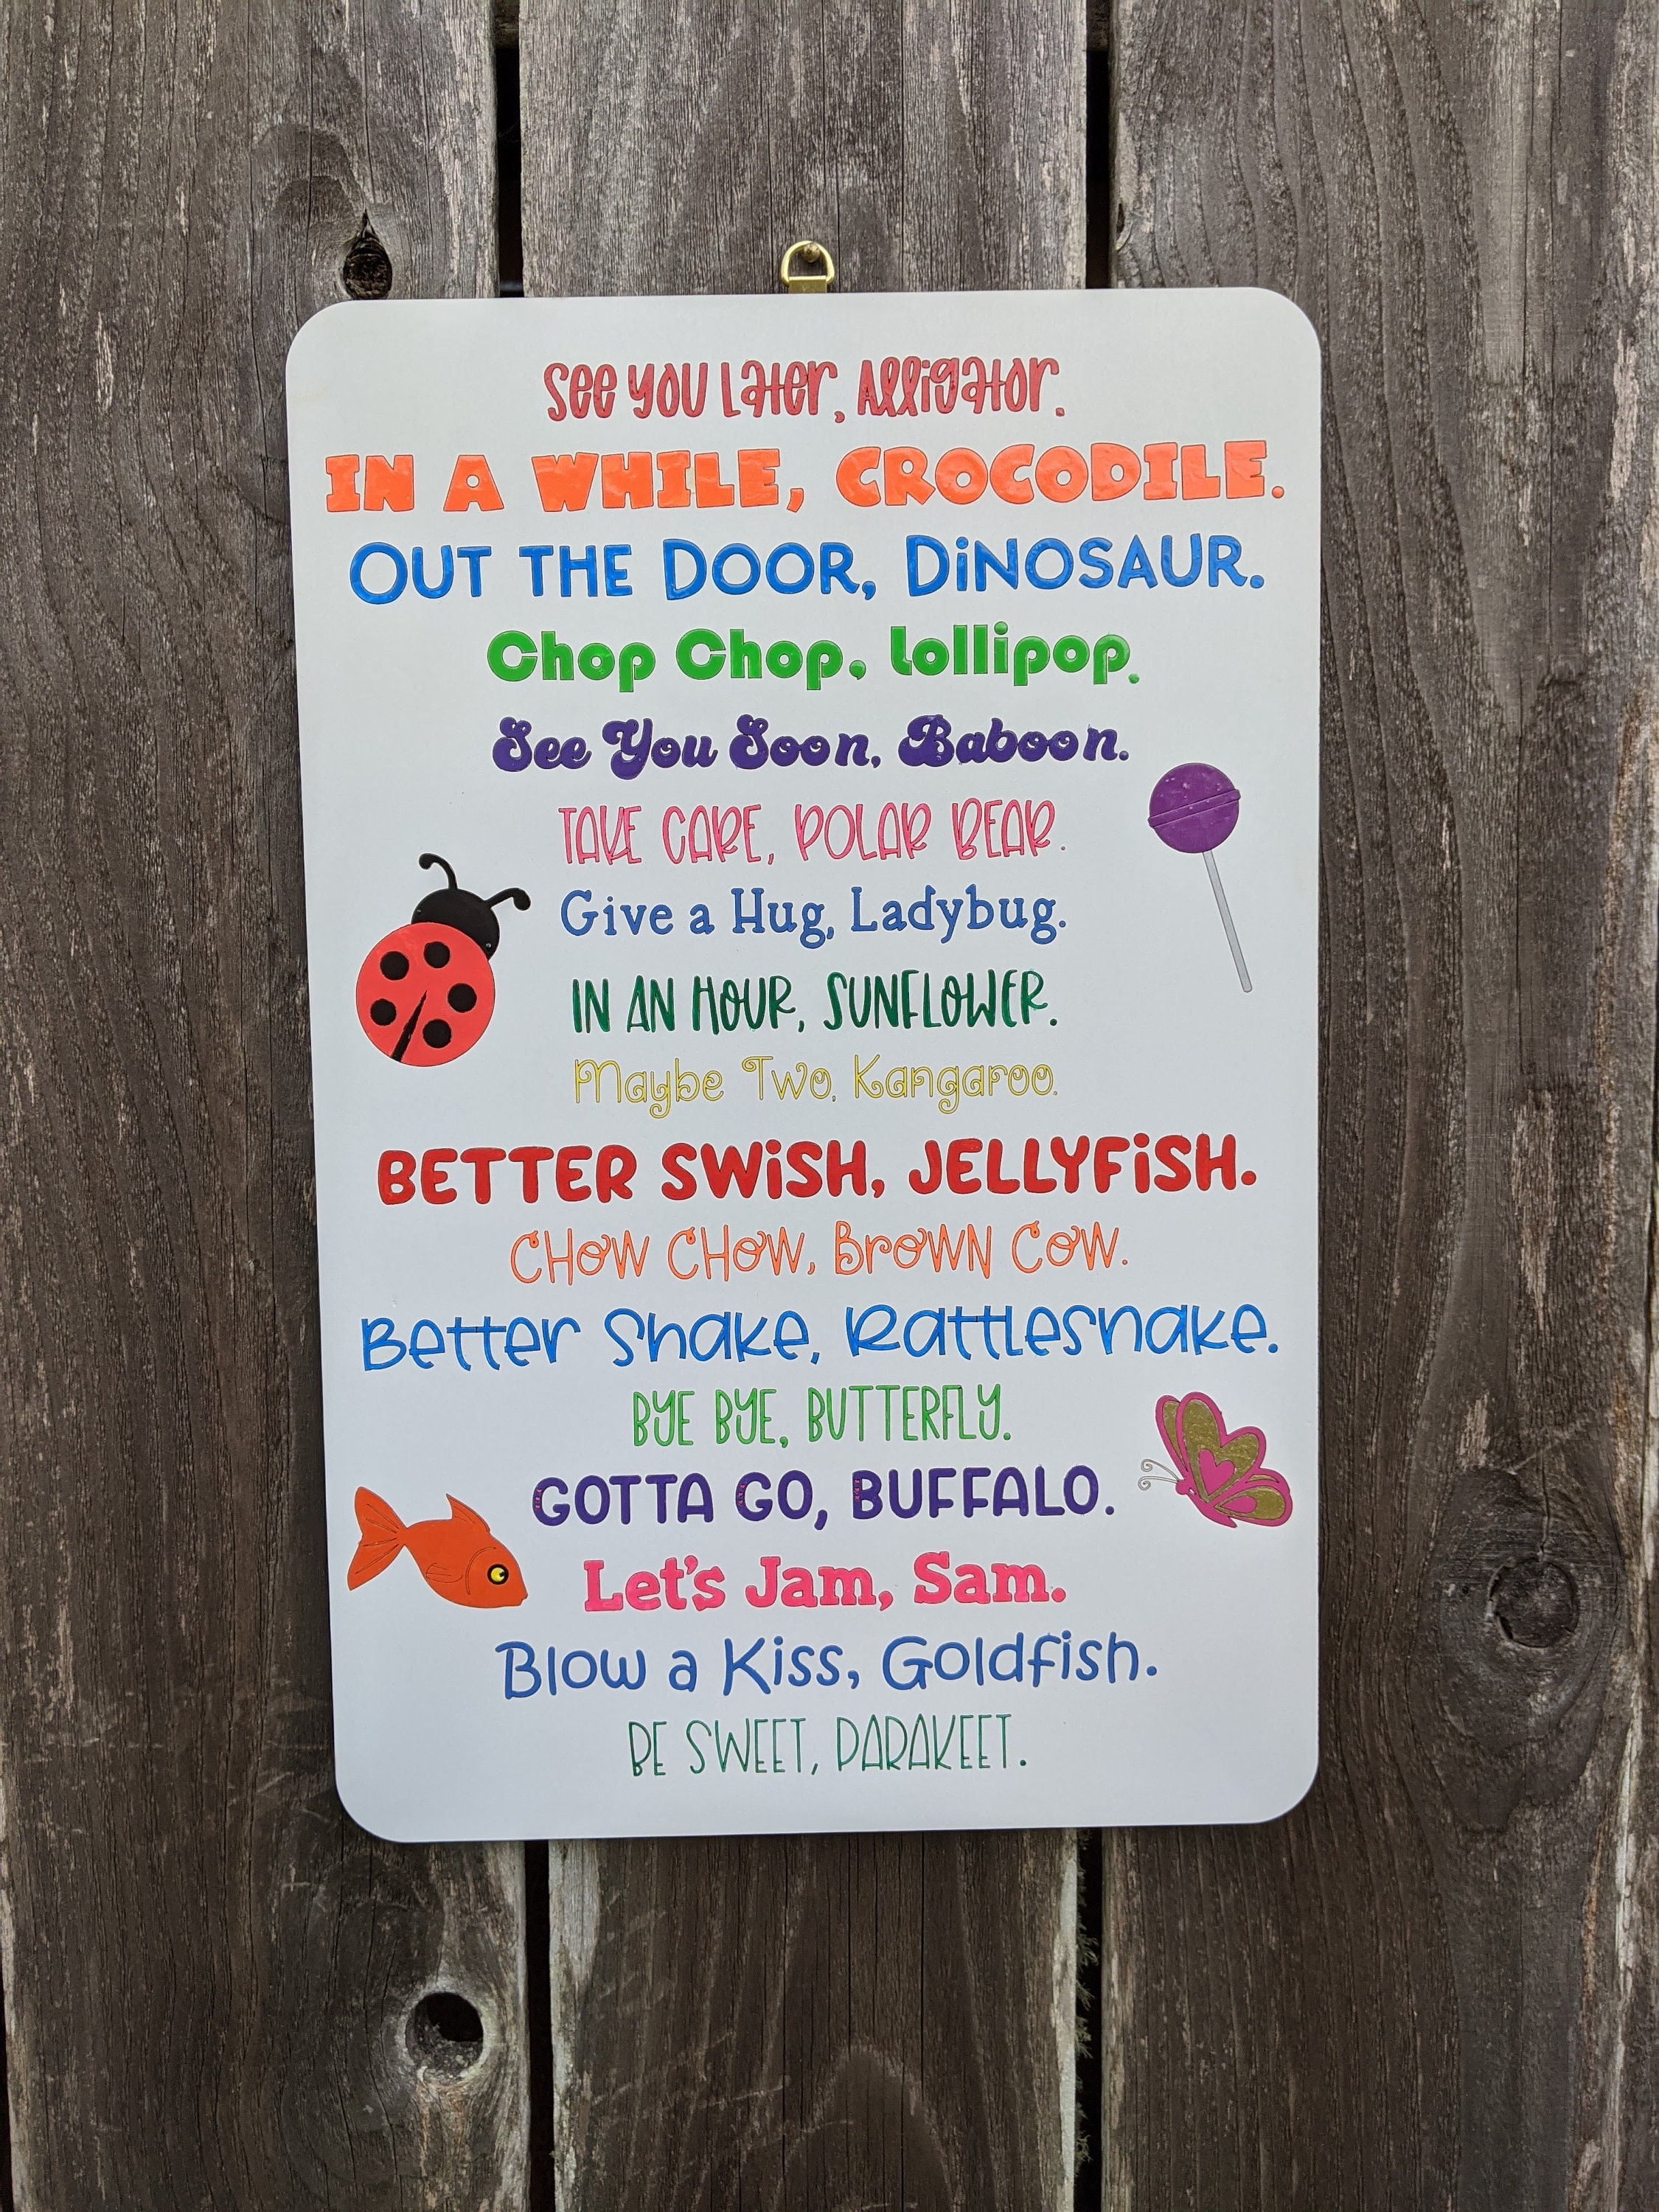 See you Later, Alligator.
IN A WHILE, CROCODILE.
OUT THE DOOR, DiNOSAUR.
Chop Chop, Lollipop.
See You Soon, Baboon.
TAKE CARE, POLAR BEAR.
Give a Hug, Ladybug.
IN AN HOUR, SUNFLOWER.
Maybe Two, Kangaroo.
BETTER SWiSH, JELLYFiSH.
CHOW CHOW, BROWN COW.
Better Shake, Rattlesnake.
BYE BYE, BUTTERFLY.
GOTTA GO, BUFFALO.
Let's Jam, Sam.
Blow a Kiss, Goldfish.
BE SWEET, PARAKEET.